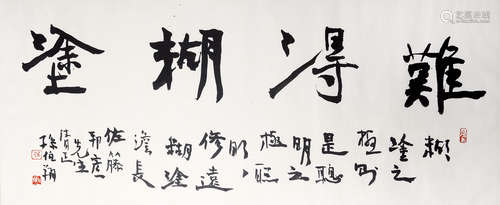 難得糊塗
糊
塗之
極則
是聰
明之
極聰
明
修遠
糊塗
長
佐藤
邦彥
先生
正
孫伯翔